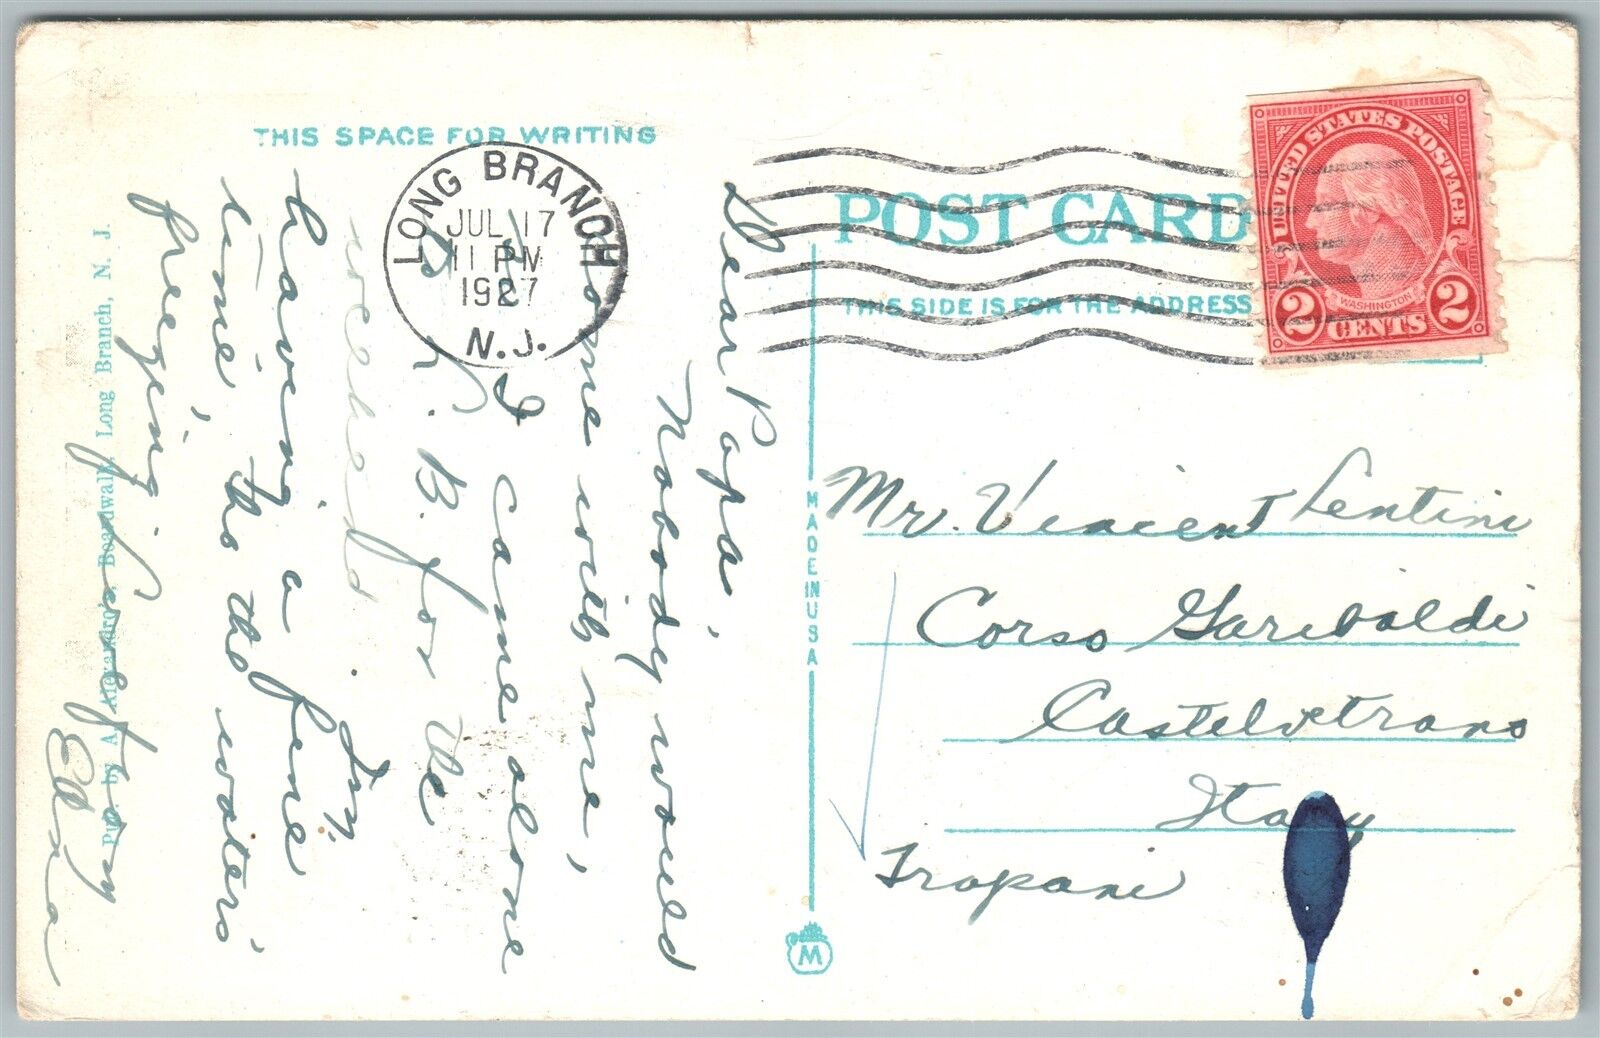 THIS SPACE FOR WRITING
Dear Papa,
Nobody would
come with me,
so I came alone
to L. B. for the
weekend. I'm
having a fine
time, tho the water's
freezing. Love from
Edna
Pub. by A. Alexandro's, Boardwalk, Long Branch, N. J.
LONG BRANCH
JUL 17
11 PM
1927
N.J.
MADE IN USA
M
POST CARD
THIS SIDE IS FOR THE ADDRESS
UNITED STATES POSTAGE
WASHINGTON
2 CENTS 2
Mr. Vincent Lentini
Corso Garibaldi
Castelvetrano
Italy
Trapani